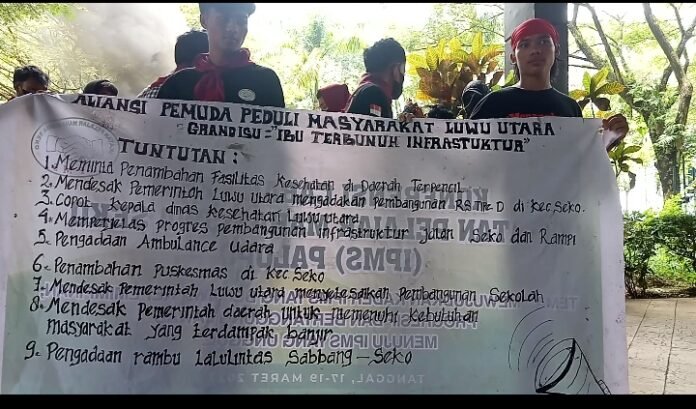 ALIANSI PEMUDA PEDULI MASYARAKAT LUWU UTARA
GRANDISU = "IBU TERBUNUH INFRASTUKTUR"
TUNTUTAN :
1. Meminta Penambahan Fasilitas Kesehatan di Daerah Terpencil
2. Mendesak Pemerintah Luwu Utara mengadakan Pembangunan RS Tipe D di Kec, Seko.
3. Copot Kepala dinas Kesehatan Luwu utara
4. Memperjelas progres pembangunan infrastruktur Jalan Seko dan Rampi
5. Pengadaan Ambulance udara
6. Penambahan Puskesmas di Kec Seko
7. Mendesak Pemerintah Luwu Utara menyelesaikan Pembangunan Sekolah
8. Mendesak Pemerintah daerah untuk memenuhi Kebutuhan
masyarakat yang terdampak banjir
9. Pengadaan rambu lalulintas Sabbang - Seko
(IPMS) PALO
MENUJU IPMS YANG
TANGGAL, 17-19 MARET